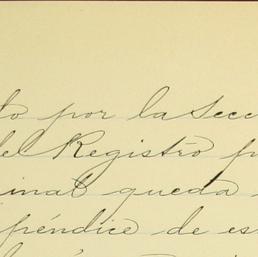 to por la Secc
del Registro p
inal queda
péndice de es